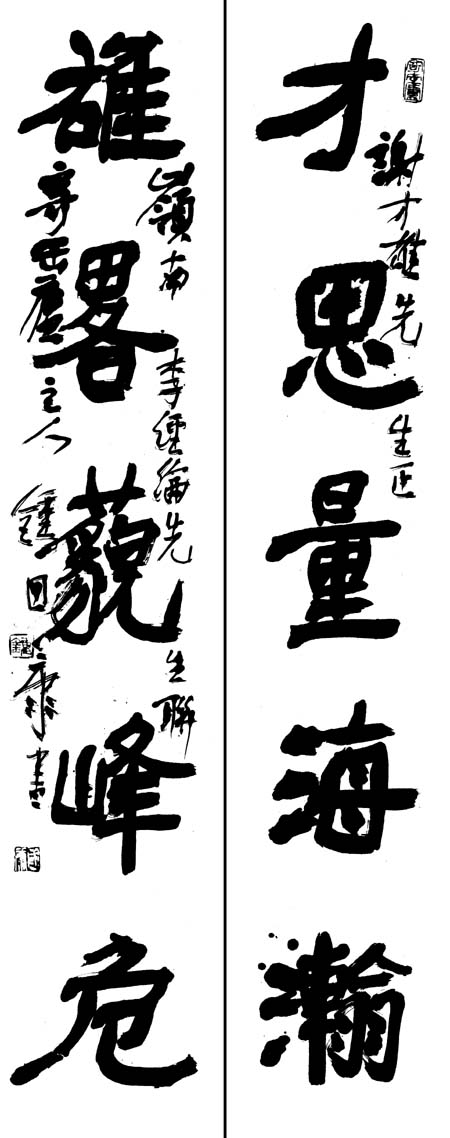 才思量海瀚
謝才雄先生正
雄畧藐峰危
嶺南李經綸先生聯
寄岳廬主人鍾日康書